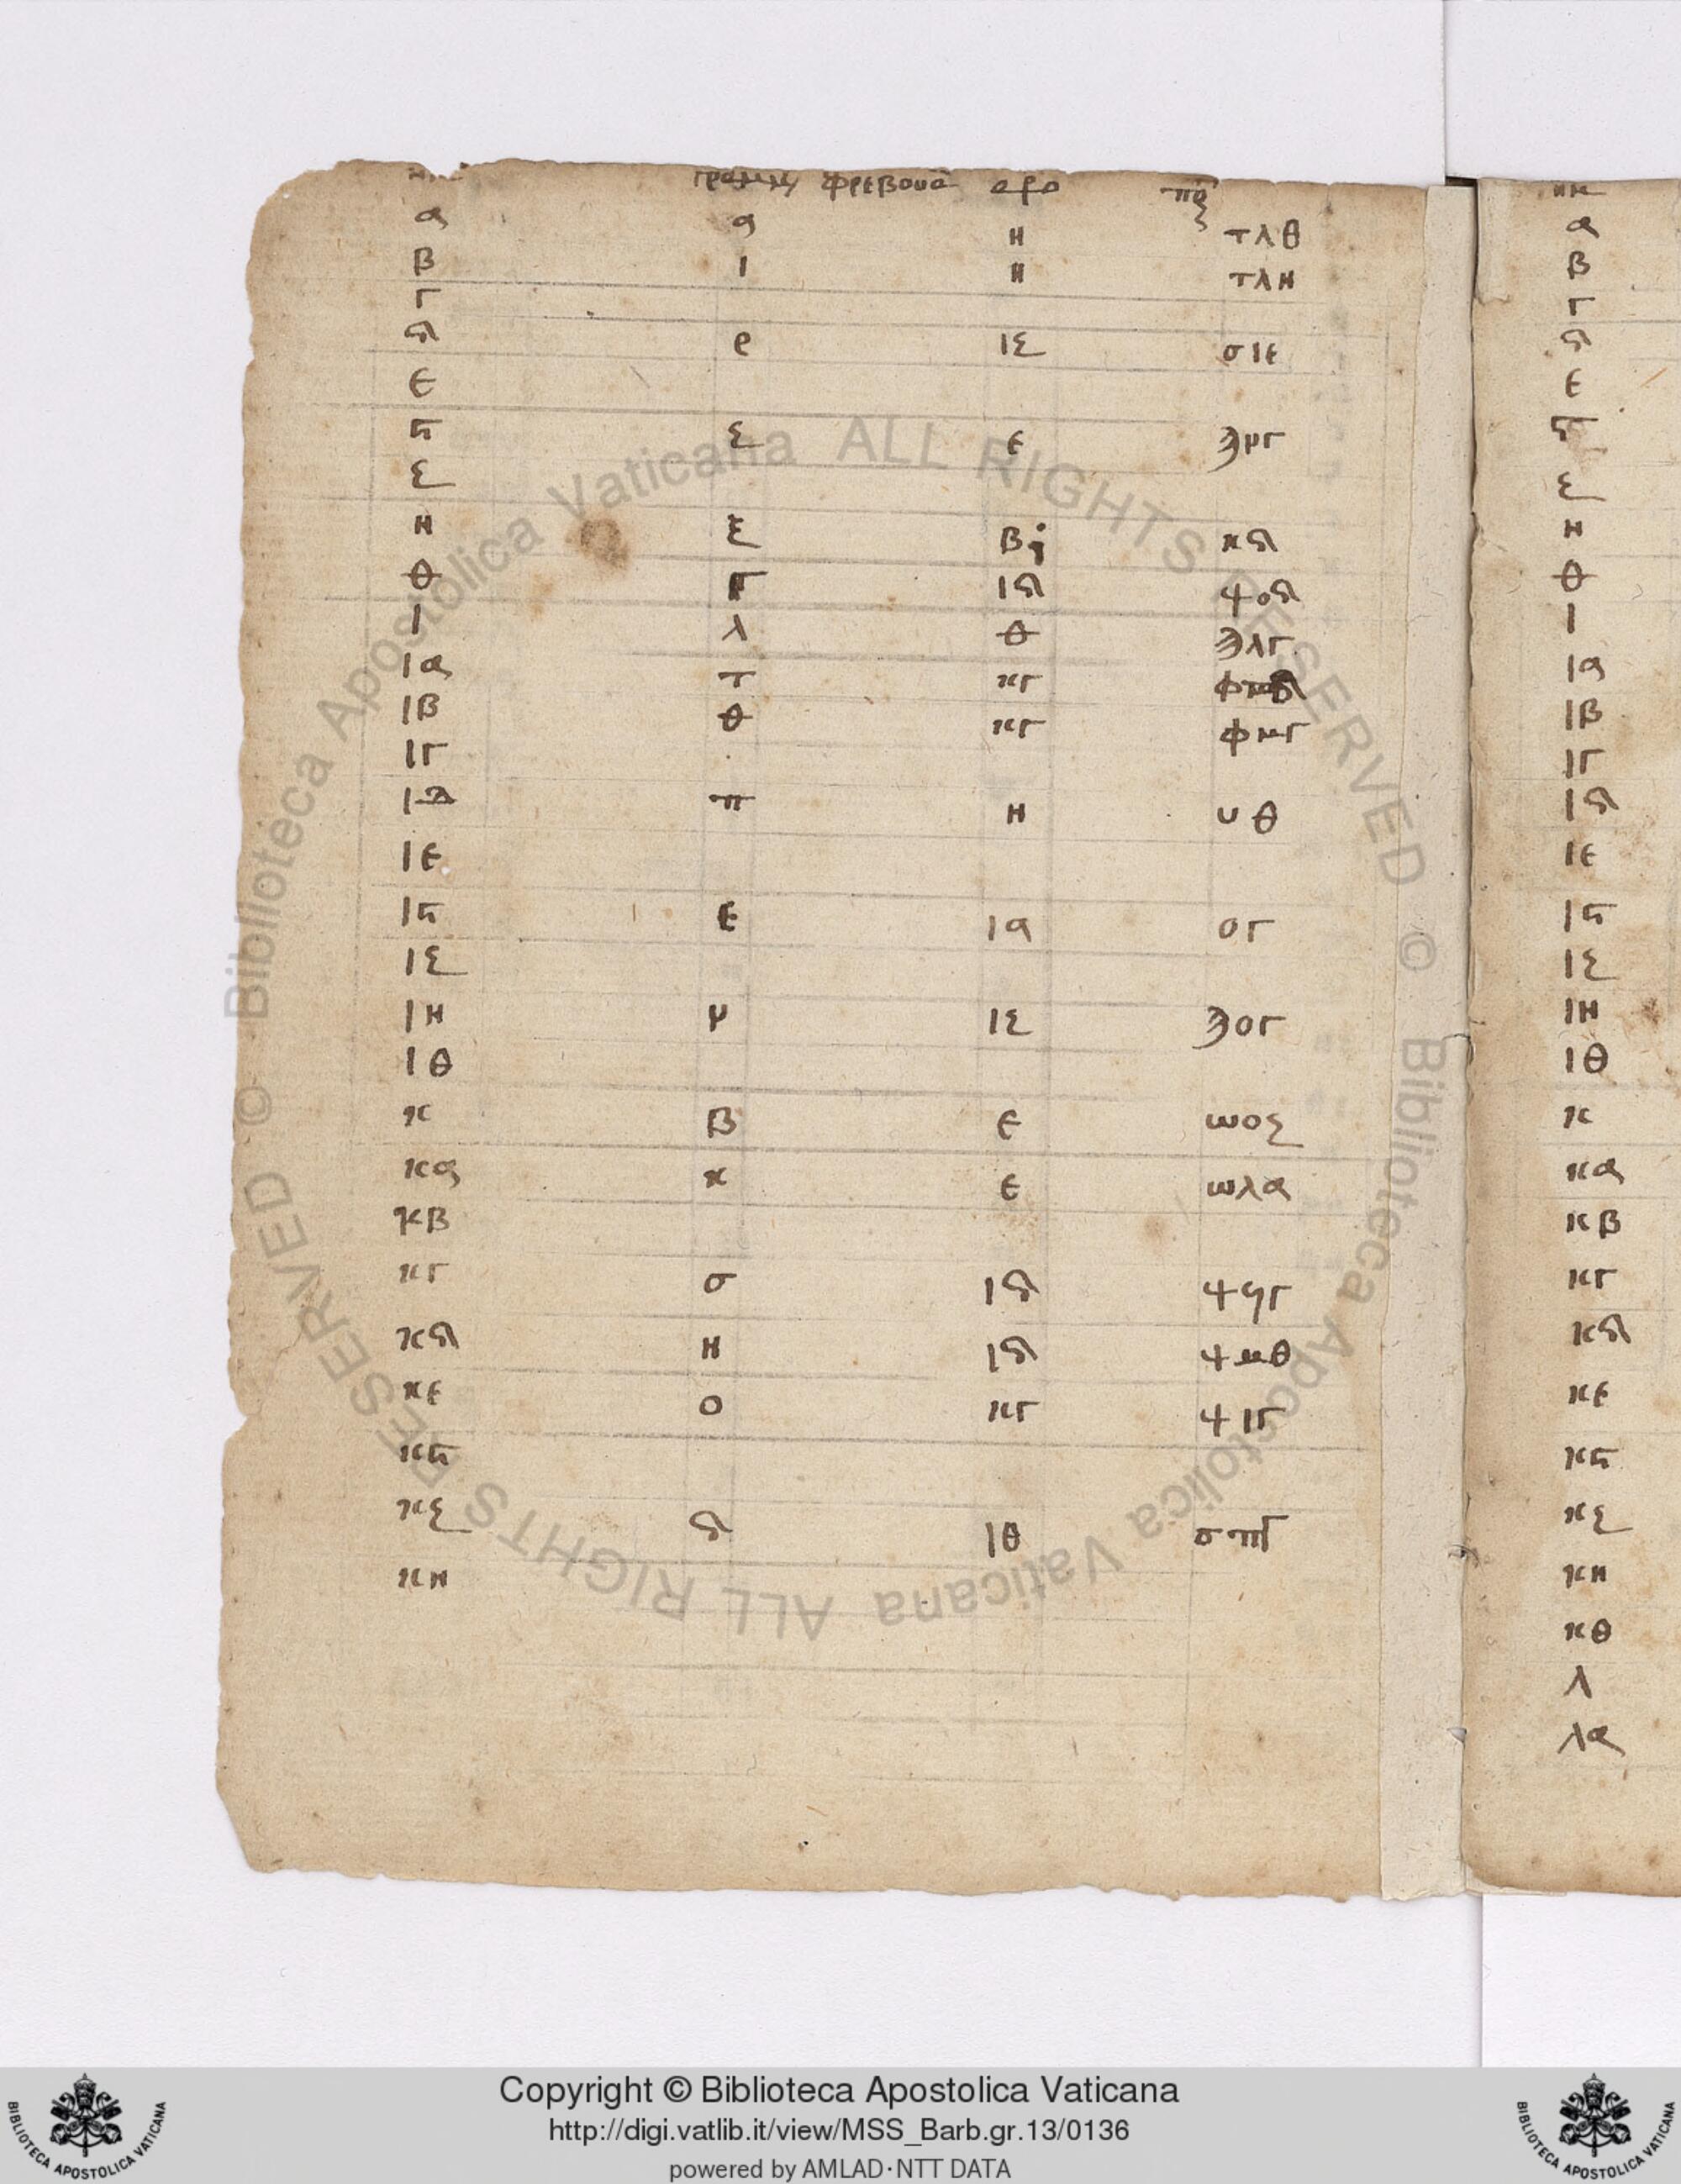 φρεβουα
α α η τλθ
β ι η τλη
γ
δ ρ ιζ σιε
ε
ϛ ζ ε ϡμγ
ζ
η ξ β κδ
θ ϛ ιδ ψοδ
ι λ θ ϡλγ
ια τ κγ
ιβ θ κγ φμγ
ιγ
ιδ π η υθ
ιε
ιϛ ε ια ογ
ιζ
ιη μ ιζ ϡογ
ιθ
κ β ε ωοζ
κα κ ε ωλα
κβ
κγ σ ιδ ψϟγ
κδ η ιδ ψμθ
κε ο κγ ψιγ
κϛ
κζ δ ιθ σπϛ
κη
α
β
γ
δ
ε
ϛ
ζ
η
θ
ι
ια
ιβ
ιγ
ιδ
ιε
ιϛ
ιζ
ιη
ιθ
κ
κα
κβ
κγ
κδ
κε
κϛ
κζ
κη
κθ
λ
λα
© Biblioteca Apostolica Vaticana ALL RIGHTS RESERVED © Biblioteca Apostolica Vaticana ALL RIGHTS RESERVED
BIBLIOTECA APOSTOLICA VATICANA
Copyright © Biblioteca Apostolica Vaticana
http://digi.vatlib.it/view/MSS_Barb.gr.13/0136
powered by AMLAD·NTT DATA
BIBLIOTECA APOSTOLICA VATICANA